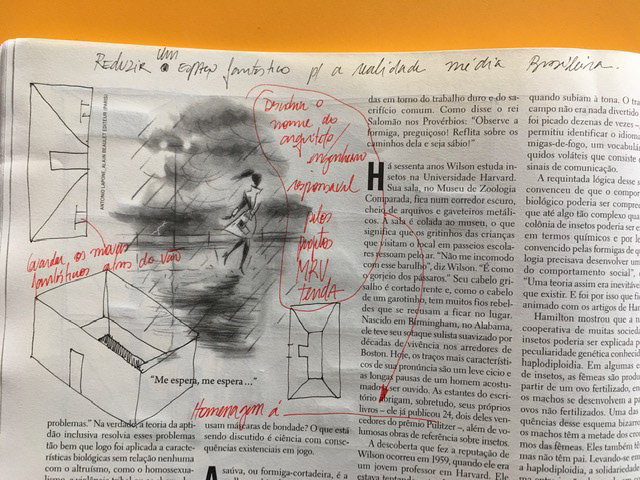 Reduzir um espaço fantástico p/ a realidade média Brasileira.
Descobrir o
nome do
arquiteto/
engenheiro
responsável
pelos
projetos
MRV
tenda
Guardar os
fantásticos além do vão
ANTONIO LAPONE, ALAIN BEAULET EDITEUR (PARIS)
"Me espera, me espera..."
Homenagem á
problemas." Na verdade, a teoria da apti-
dão inclusiva resolvia esses problemas
tão bem que logo foi aplicada a caracte-
rísticas biológicas sem relação nenhuma
com o altruísmo, como o homossexua-
usam máscaras de bondade? O que está
sendo discutido é ciência com conse-
quências existenciais em jogo.
A saúva, ou formiga-cortadeira, é a
das em torno do trabalho duro e do sa-
crifício comum. Como disse o rei
Salomão nos Provérbios: "Observe a
formiga, preguiçoso! Reflita sobre os
caminhos dela e seja sábio!"
Há sessenta anos Wilson estuda in-
setos na Universidade Harvard.
Sua sala, no Museu de Zoologia
Comparada, fica num corredor escuro,
cheio de arquivos e gaveteiros metáli-
cos. A sala é colada ao museu, o que
significa que os gritinhos das crianças
que visitam o local em passeios escola-
res ressoam pelo ar. "Não me incomodo
com esse barulho", diz Wilson. "É como
o gorjeio dos pássaros." Seu cabelo gri-
salho é cortado rente e, como o cabelo
de um garotinho, tem muitos fios rebel-
des que se recusam a ficar no lugar.
Nascido em Birmingham, no Alabama,
ele teve seu sotaque sulista suavizado por
décadas de vivência nos arredores de
Boston. Hoje, os traços mais característi-
cos de sua pronúncia são um leve cicio e
as longas pausas de um homem acostu-
mado a ser ouvido. As estantes do escri-
tório abrigam, sobretudo, seus próprios
livros – ele já publicou 24, dois deles ven-
cedores do prêmio Pulitzer –, além de vo-
lumosas obras de referência sobre insetos.
A descoberta que fez a reputação de
Wilson ocorreu em 1959, quando ele era
um jovem professor em Harvard. Ele
quando subiam à tona. O
campo não era nada divertido
foi picado dezenas de vezes –
permitiu identificar o idioma
migas-de-fogo, um vocabulá
quidos voláteis que consiste
sinais de comunicação.
A rquintada lógica desse
convenceu de que o comp
biológico poderia ser compre
que até algo tão complexo qu
colônia de insetos poderia ser
em termos químicos e por i
convencido pelas formigas de q
logia precisava desenvolver um
do comportamento social",
"Uma teoria assim era inevitáv
que existir. E foi por isso que f
animado com os artigos de Ham
Hamilton mostrou que a n
cooperativa de muitas socied
insetos poderia ser explicada p
peculiaridade genética conheci
haplodiploidia. Em algumas e
de insetos, as fêmeas são prod
partir de um ovo fertilizado, en
os machos se desenvolvem a p
ovos não fertilizados. Uma da
quências desse esquema bizarr
os machos têm a metade dos c
mos das fêmeas. Eles também t
mas não têm pai. Levando-se em
a haplodiploidia, a solidarieda